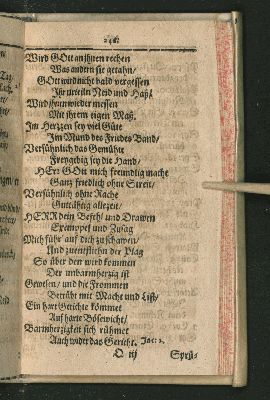 246.
Wird GOtt an jhnen rechen
Was andern sie gethan/
GOtt wird nicht bald vergessen
Jhr urteiln Neid und Haß/
Wird jhnen wieder messen
Mit jhrem eigen Maß.
Im Hertzen sey viel Güte
Im Mund des Friedes Band/
Versühnlich das Gemühte
Freygebig sey die Hand/
HErr GOtt mich freundlig mache
Gantz friedlich ohne Streit/
Versühnlich ohne Rache
Guttähtig allezeit/
HERR dein Befehl und Drawen
Exempel und Zusag
Mich führ auf dich zuschawen/
Und zuentfliehn der Plag
So über den wird kommen
Der unbarmhertzig ist
Gewesen/ und die Frommen
Berückt mit Macht und List/
Ein hart Gerichte kömmet
Auf harte Bösewicht/
Barmhertzigkeit sich rühmet
Auch wider das Gericht. Jac: 2.
Q iij
Sprü-